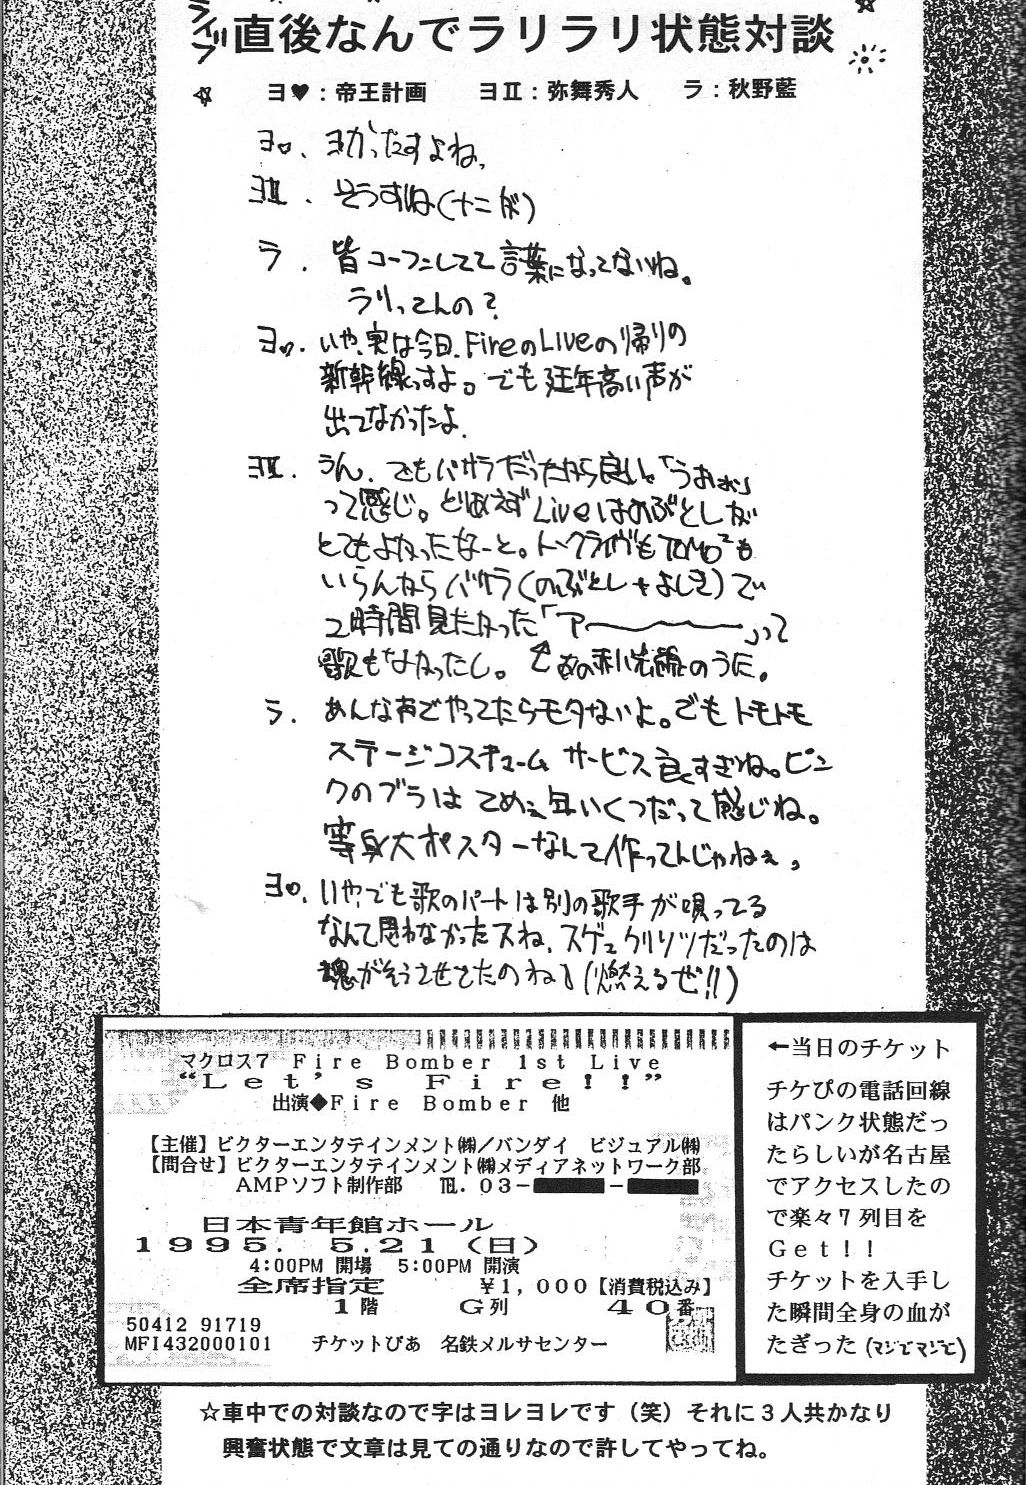 ライブ直後なんでラリラリ状態対談
ヨ♥:帝王計画 ヨII:弥舞秀人 ラ:秋野藍
ヨ♥. ヨかったすよね、
ヨII. そうすね(ナニが)
ラ. 皆コーフンしてて言葉になってないね。
ラリってんの?
ヨ♥. いや、実は今日、FireのLiveの帰りの
新幹線っすよ。でも延年高い声が
出てなかったよ.
ヨII. うん、でもバサラだったから良いや「うおぉ」
って感じ。とりあえずLiveはのぶとしが
とてもよかったなーと。トークライヴもTOMO²も
いらんからバサラ(のぶとし+よしき)で
2時間見たかった「アーーーー」って
歌もなかったし。↑あの利光論のうた。
ラ. あんな声でやってたらモタないよ。でもトモトモ
ステージコスチューム サービス良すぎね。ピン
クのブラはてめェ年いくつだって感じね。
等身大ポスターなんて作ってんじゃねぇ、
ヨ♥. いや、でも歌のパートは別の歌手が唄ってる
なんて思わなかったスね、スゲェクリソツだったのは
魂がそうさせてたのね♪(燃えるぜ!!)
マクロス7 Fire Bomber 1st Live
“Let's Fire!!”
出演◆Fire Bomber 他
【主催】ビクターエンタテインメント㈱/バンダイ ビジュアル㈱
【問合せ】ビクターエンタテインメント㈱メディアネットワーク部
AMPソフト制作部 ℡.03- -
日本青年館ホール
1995. 5.21(日)
4:00PM 開場 5:00PM 開演
全席指定 ¥1,000【消費税込み】
1階 G列 40番
50412 91719
MFI432000101 チケットぴあ 名鉄メルサセンター
←当日のチケット
チケぴの電話回線
はパンク状態だっ
たらしいが名古屋
でアクセスしたの
で楽々7列目を
Get!!
チケットを入手し
た瞬間全身の血が
たぎった(マジでマジで)
☆車中での対談なので字はヨレヨレです(笑)それに3人共かなり
興奮状態で文章は見ての通りなので許してやってね。